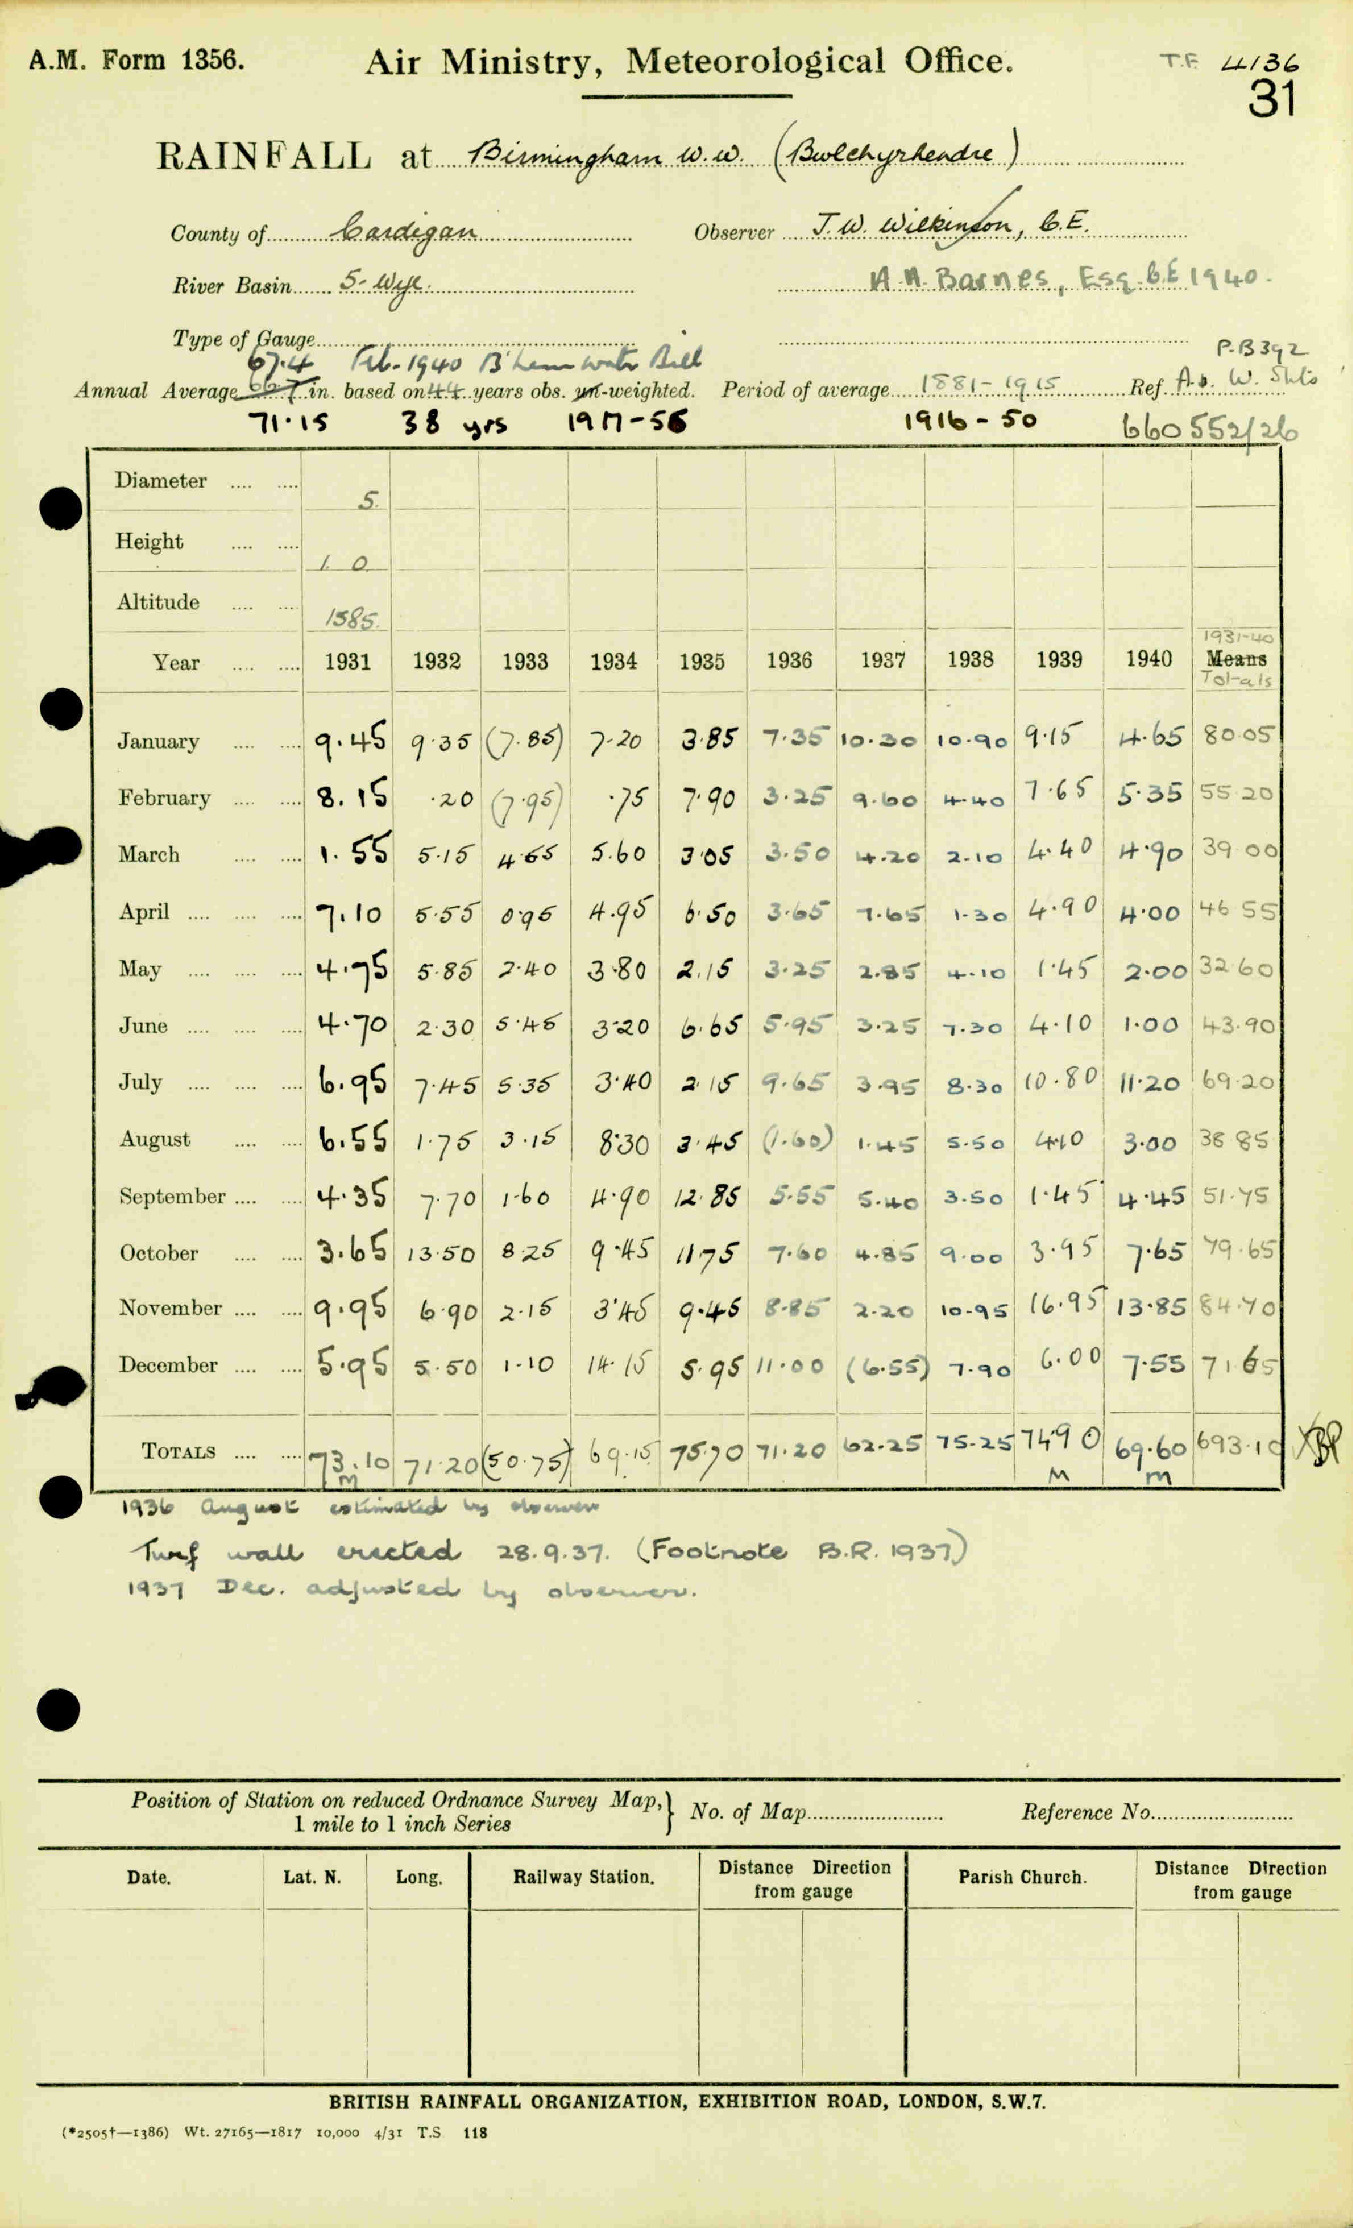 A.M. Form 1356. Air Ministry, Meteorological Office. T.F. 4136
31
RAINFALL at Birmingham W.W. (Bwlchyrhendre)
County of Cardigan Observer J.W. Wilkinson, C.E.
River Basin 5- Wye. A.A. Barnes, Esq. C.E 1940.
Type of Gauge
67.4 Feb. 1940 B'ham Water Bill P.B 392
Annual Average in. based on 44 years obs. un-weighted. Period of average 1881-1915 Ref. Av. W. Shts
71.15 38 yrs 1917-56 1916-50 660 552/26
Diameter 5.
Height 1. 0
Altitude 1385.
1931-40
Year 1931 1932 1933 1934 1935 1936 1937 1938 1939 1940 Means
Totals
January 9.45 9.35 (7.85) 7.20 3.85 7.35 10.30 10.90 9.15 4.65 80.05
February 8.15 .20 (7.95) .75 7.90 3.25 9.60 4.40 7.65 5.35 55.20
March 1.55 5.15 4.65 5.60 3.05 3.50 4.20 2.10 4.40 4.90 39 00
April 7.10 5.55 0.95 4.95 6.50 3.65 7.65 1.30 4.90 4.00 46 55
May 4.75 5.85 2.40 3.80 2.15 3.25 2.85 4.10 1.45 2.00 32.60
June 4.70 2.30 5.45 3.20 6.65 5.95 3.25 7.30 4.10 1.00 43.90
July 6.95 7.45 5.35 3.40 2.15 9.65 3.95 8.30 10.80 11.20 69.20
August 6.55 1.75 3.15 8.30 3.45 (1.60) 1.45 5.50 4.10 3.00 38 85
September 4.35 7.70 1.60 4.90 12.85 5.55 5.40 3.50 1.45 4.45 51.75
October 3.65 13.50 8.25 9.45 11.75 7.60 4.85 9.00 3.95 7.65 79.65
November 9.95 6.90 2.15 3.45 9.45 8.85 2.20 10.95 16.95 13.85 84.70
December 5.95 5.50 1.10 14.15 5.95 11.00 (6.55) 7.90 6.00 7.55 71.65
TOTALS 73.10 71.20 (50.75) 69.15 75.70 71.20 62.25 75.25 74.90 69.60 693.10
M M M
1936 August estimated by observer
Turf wall erected 28.9.37. (Footnote B.R. 1937)
1937 Dec. adjusted by observer.
Position of Station on reduced Ordnance Survey Map, No. of Map Reference No.
1 mile to 1 inch Series
Date. Lat. N. Long. Railway Station. Distance Direction from gauge Parish Church. Distance Direction from gauge
BRITISH RAINFALL ORGANIZATION, EXHIBITION ROAD, LONDON, S.W.7.
(*2505†—1386) Wt. 27165—1817 10,000 4/31 T.S. 118